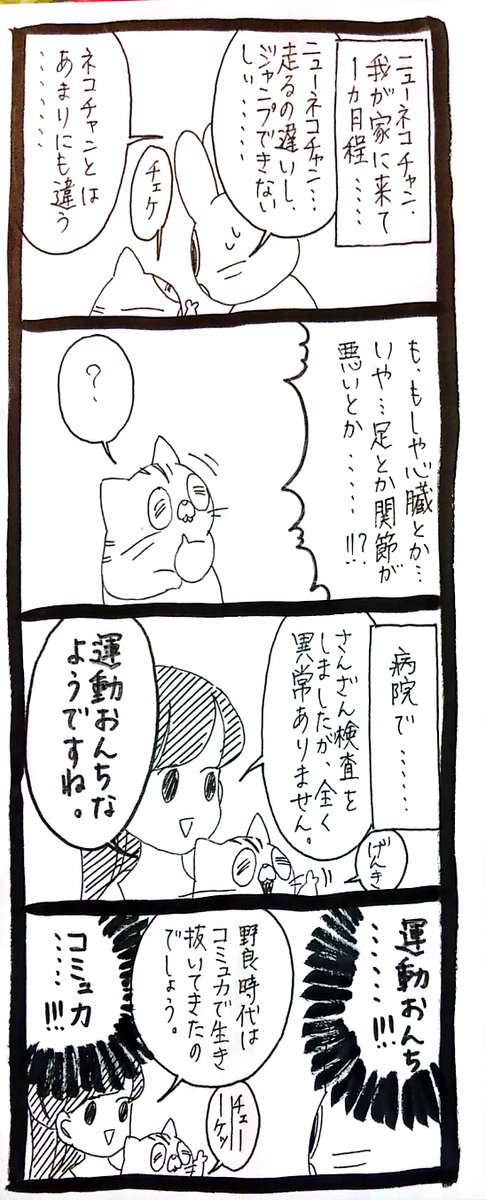 ニューネコチャン、
我が家に来て
1ヵ月程……
ニューネコチャン…
走るの遅いし、
ジャンプできない
しぃ………
チェケ
ネコチャンとは
あまりにも違う
………
も、もしや心臓とか…
いや…足とか関節が
悪いとか……!!?
?
病院で……
さんざん検査を
しましたが、全く
異常ありません。
げんき
運動おんちな
ようですね。
運動おんち
……!!!
野良時代は
コミュ力で生き
抜いてきたの
でしょう。
チェー
ーケッ
コミュ力
……!!!